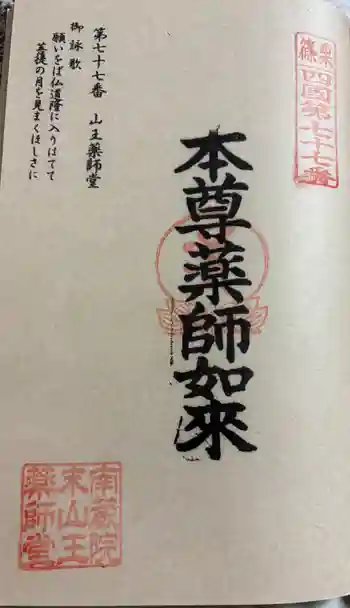 篠栗
四國第七十七番
本尊薬師如來
第七十七番　山王薬師堂
御詠歌
願いをば仏道隆に入りはてて
菩提の月を見まくほしさに
南蔵院
末山王
薬師堂